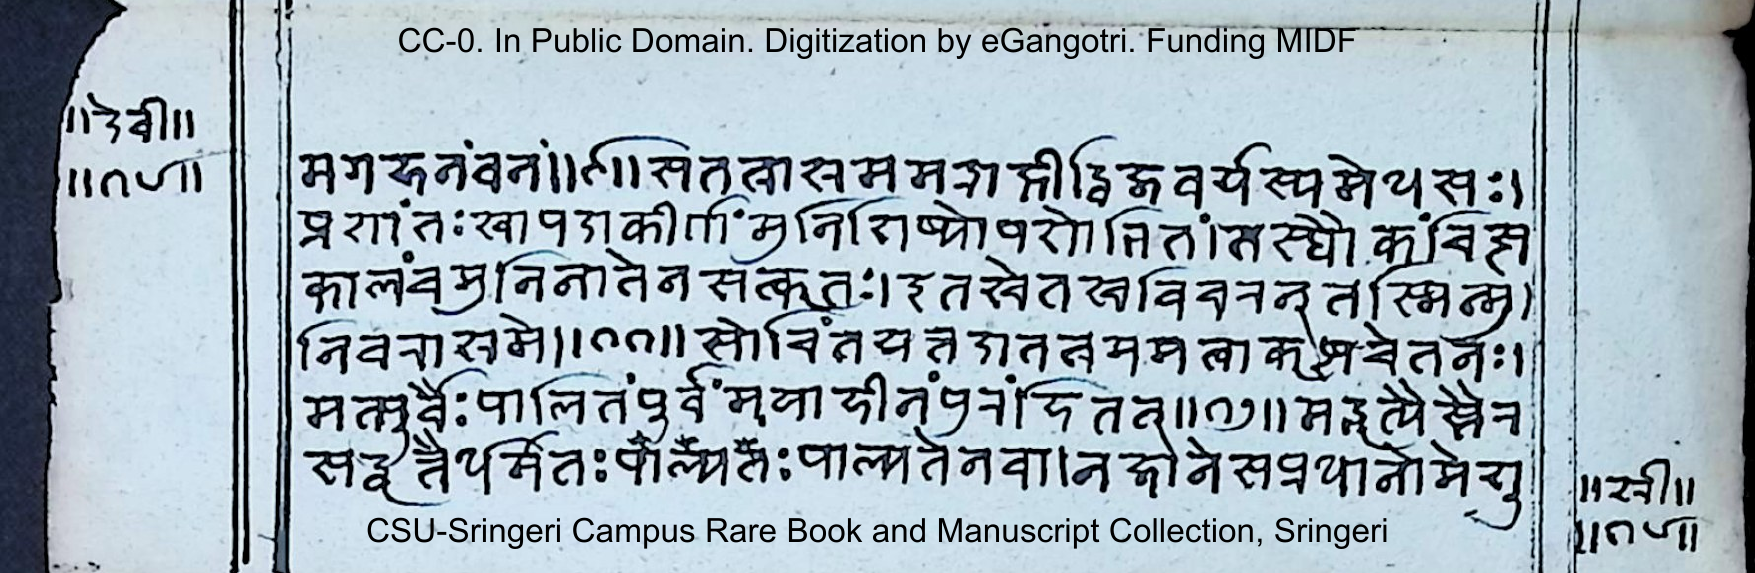 CC-0. In Public Domain. Digitization by eGangotri. Funding MIDF
॥देवी॥
॥१७॥
मगहनंवनं॥९॥सतत्राश्रममद्राक्षीद्विजवर्यस्यमेधसः।
प्रशांतःश्वापदाकीर्णंमुनिशिष्योपशोभितं।तस्थौकंचित्स
कालंचमुनिनातेनसत्कृतः।इतश्चेतश्चविचरन्तस्मिन्मु
निवराश्रमे॥११॥सोचिंतयत्तदातत्रममत्वाकृष्टचेतनः।
मत्पूर्वैःपालितंपूर्वंमयाहीनंपुरंहितत्॥१२॥मद्भृत्यैस्तैर
सद्वृत्तैर्धर्मतःपाल्यतेनवा।नजानेसप्रधानोमेशू
॥स्त्री॥
॥१७॥
CSU-Sringeri Campus Rare Book and Manuscript Collection, Sringeri